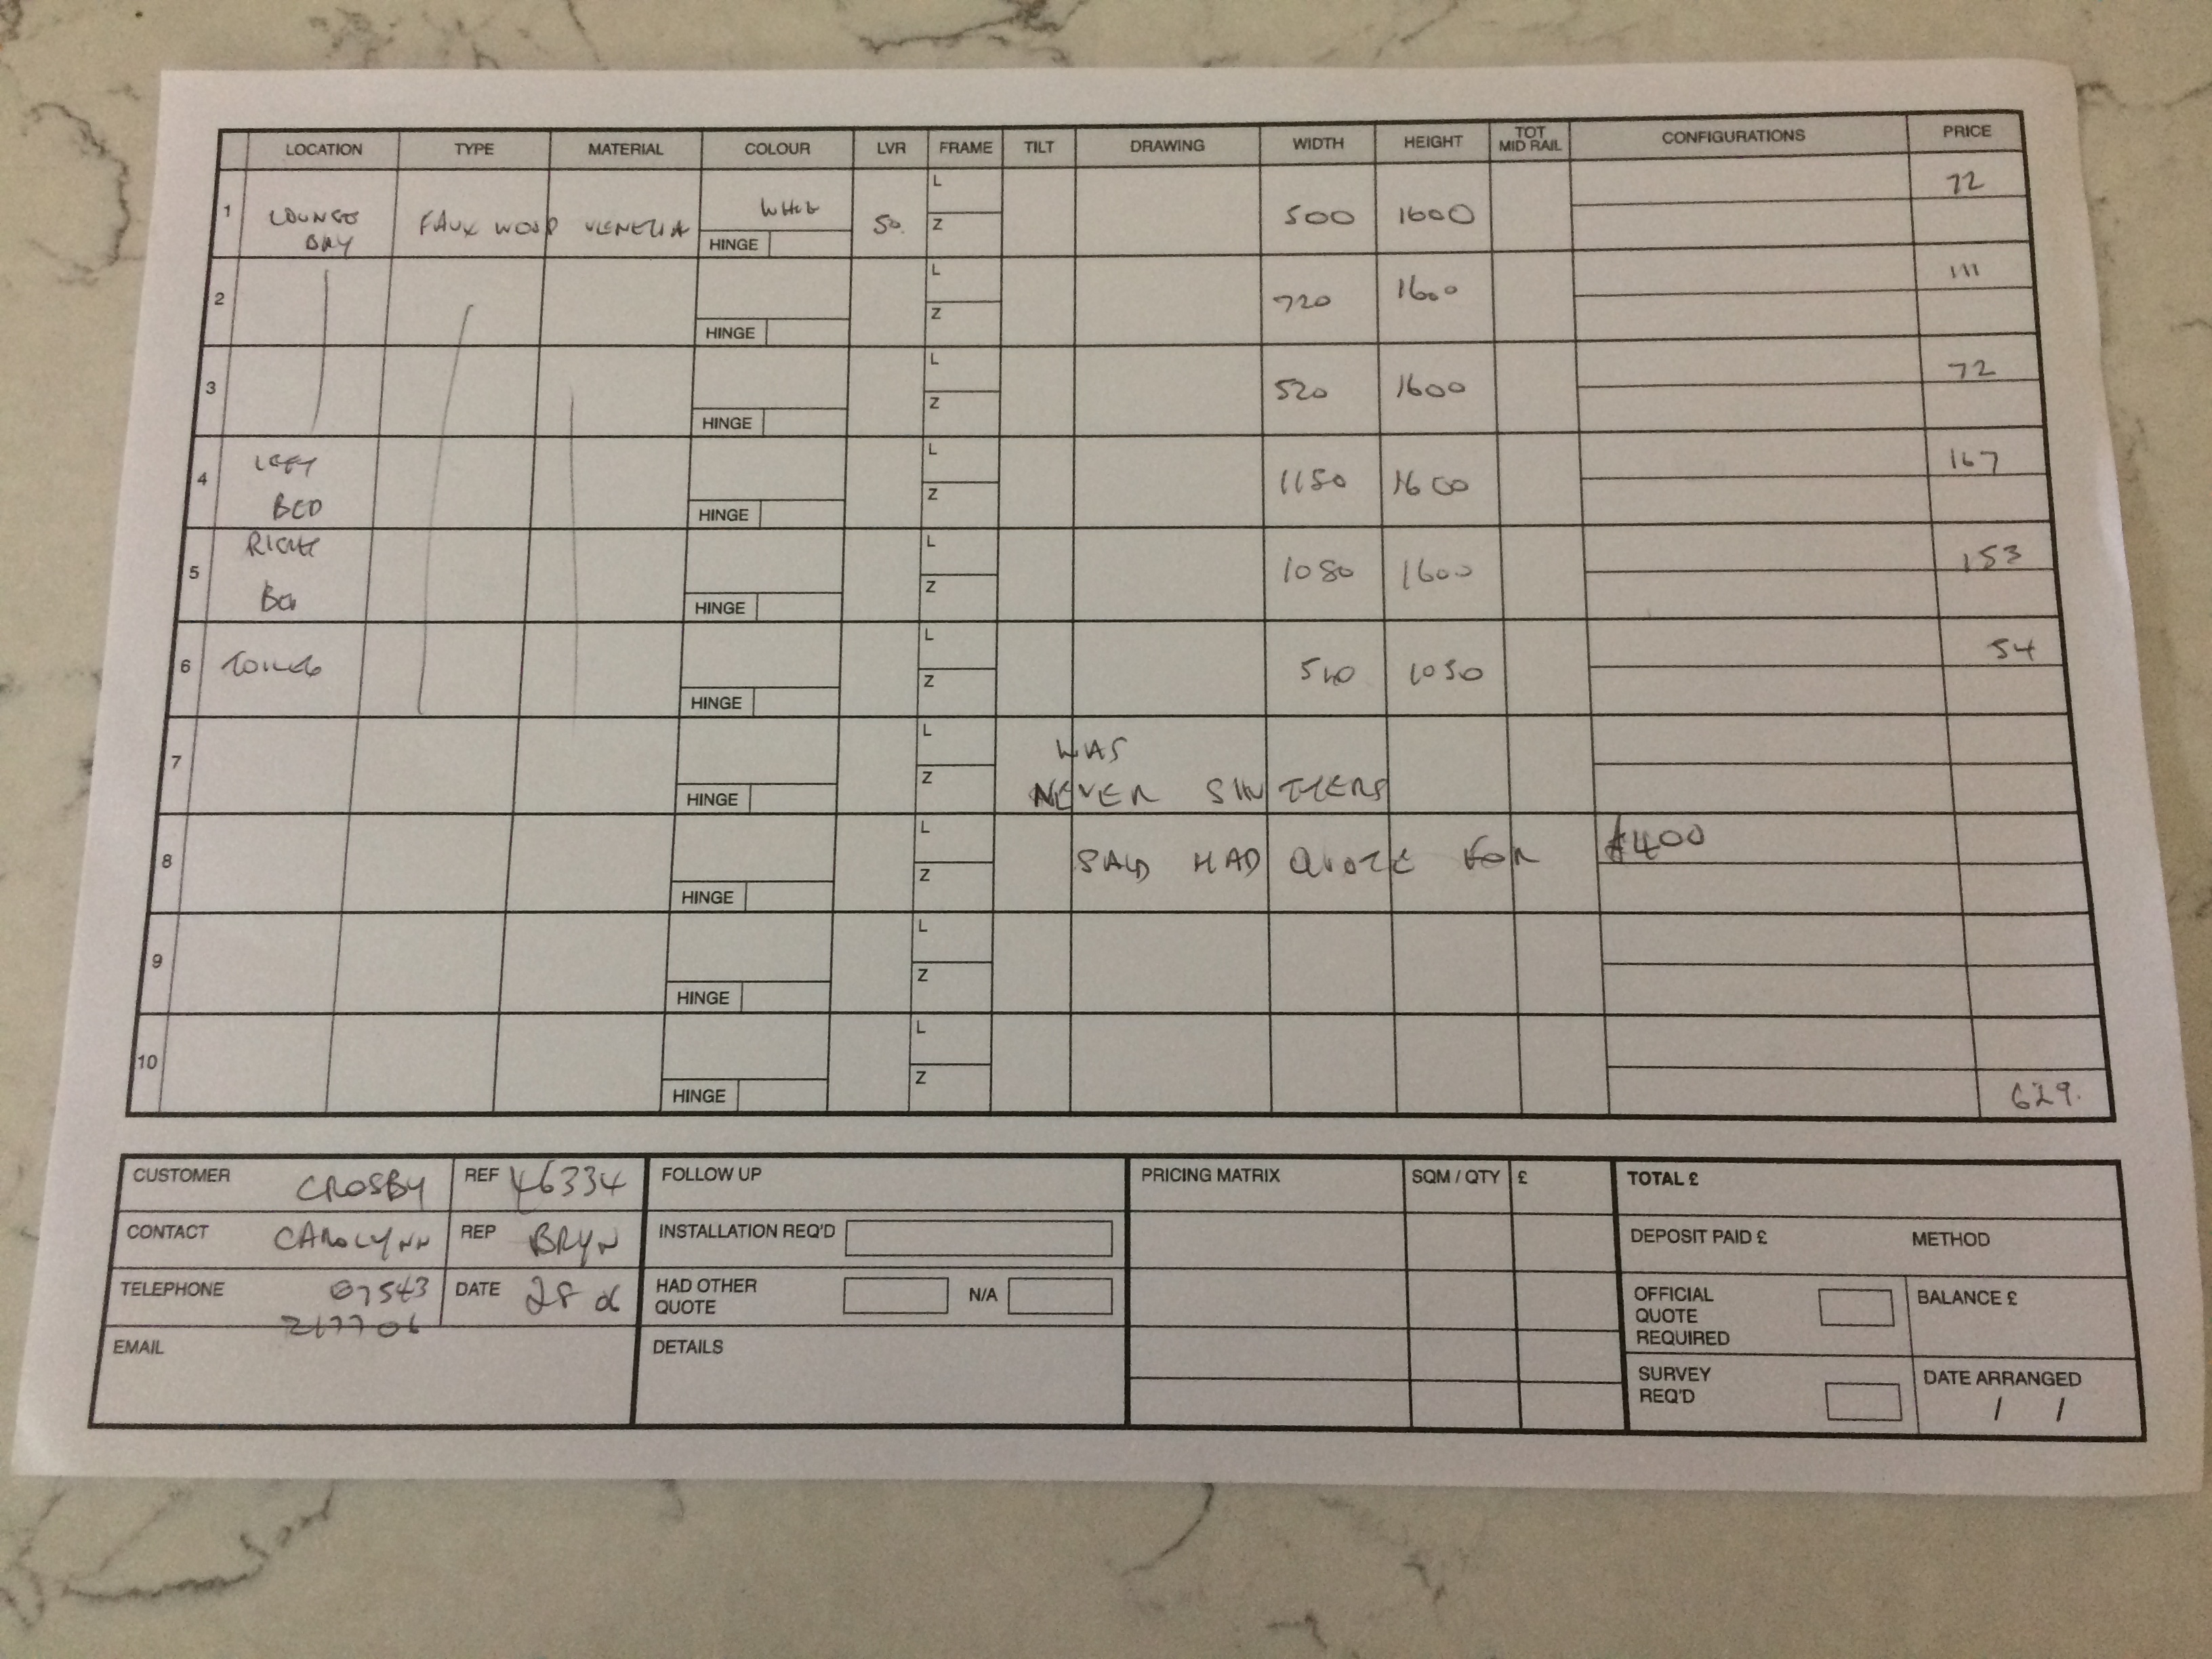 LOCATION TYPE MATERIAL COLOUR LVR FRAME TILT DRAWING WIDTH HEIGHT TOT MID RAIL CONFIGURATIONS PRICE
1 LOUNGE BAY FAUX WOOD VENETIA WHITE HINGE 50 L Z 500 1600 72
2 HINGE L Z 720 1600 111
3 HINGE L Z 520 1600 72
4 LEFT BED HINGE L Z 1150 1600 167
5 RIGHT HINGE L Z 1080 1600 153
6 TOILET HINGE L Z 540 1050 54
7 HINGE L Z WAS
NEVER SHUTTERS
8 HINGE L Z SAID HAD QUOTE FOR £400
9 HINGE L Z
10 HINGE L Z 629.
CUSTOMER CROSBY REF 46334 FOLLOW UP PRICING MATRIX SQM / QTY £ TOTAL £
CONTACT CAROLYNN REP BRYN INSTALLATION REQ'D DEPOSIT PAID £ METHOD
TELEPHONE 07543 217706 DATE 28 06 HAD OTHER QUOTE N/A OFFICIAL QUOTE REQUIRED BALANCE £
EMAIL DETAILS SURVEY REQ'D DATE ARRANGED / /